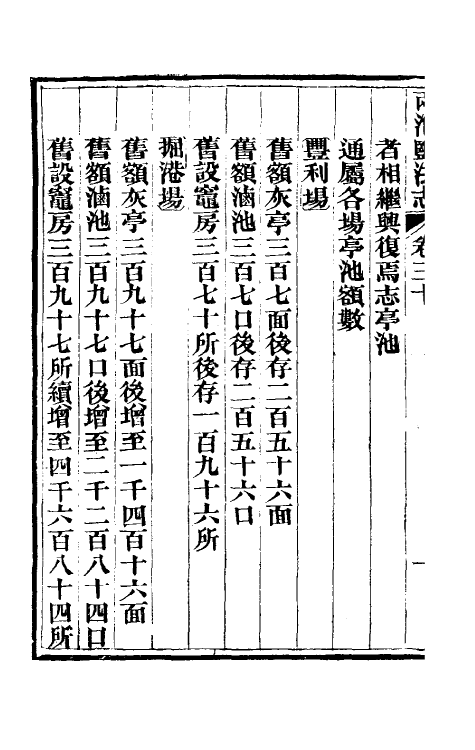 兩淮鹽法志 卷三十 一
者相繼興復焉志亭池
通屬各場亭池額數
豐利場
舊額灰亭三百七面後存二百五十六面
舊額滷池三百七口後存二百五十六口
舊設竈房三百七十所後存一百九十六所
掘港場
舊額灰亭三百九十七面後增至一千四百十六面
舊額滷池三百九十七口後增至二千二百八十四口
舊設竈房三百九十七所續增至四千六百八十四所